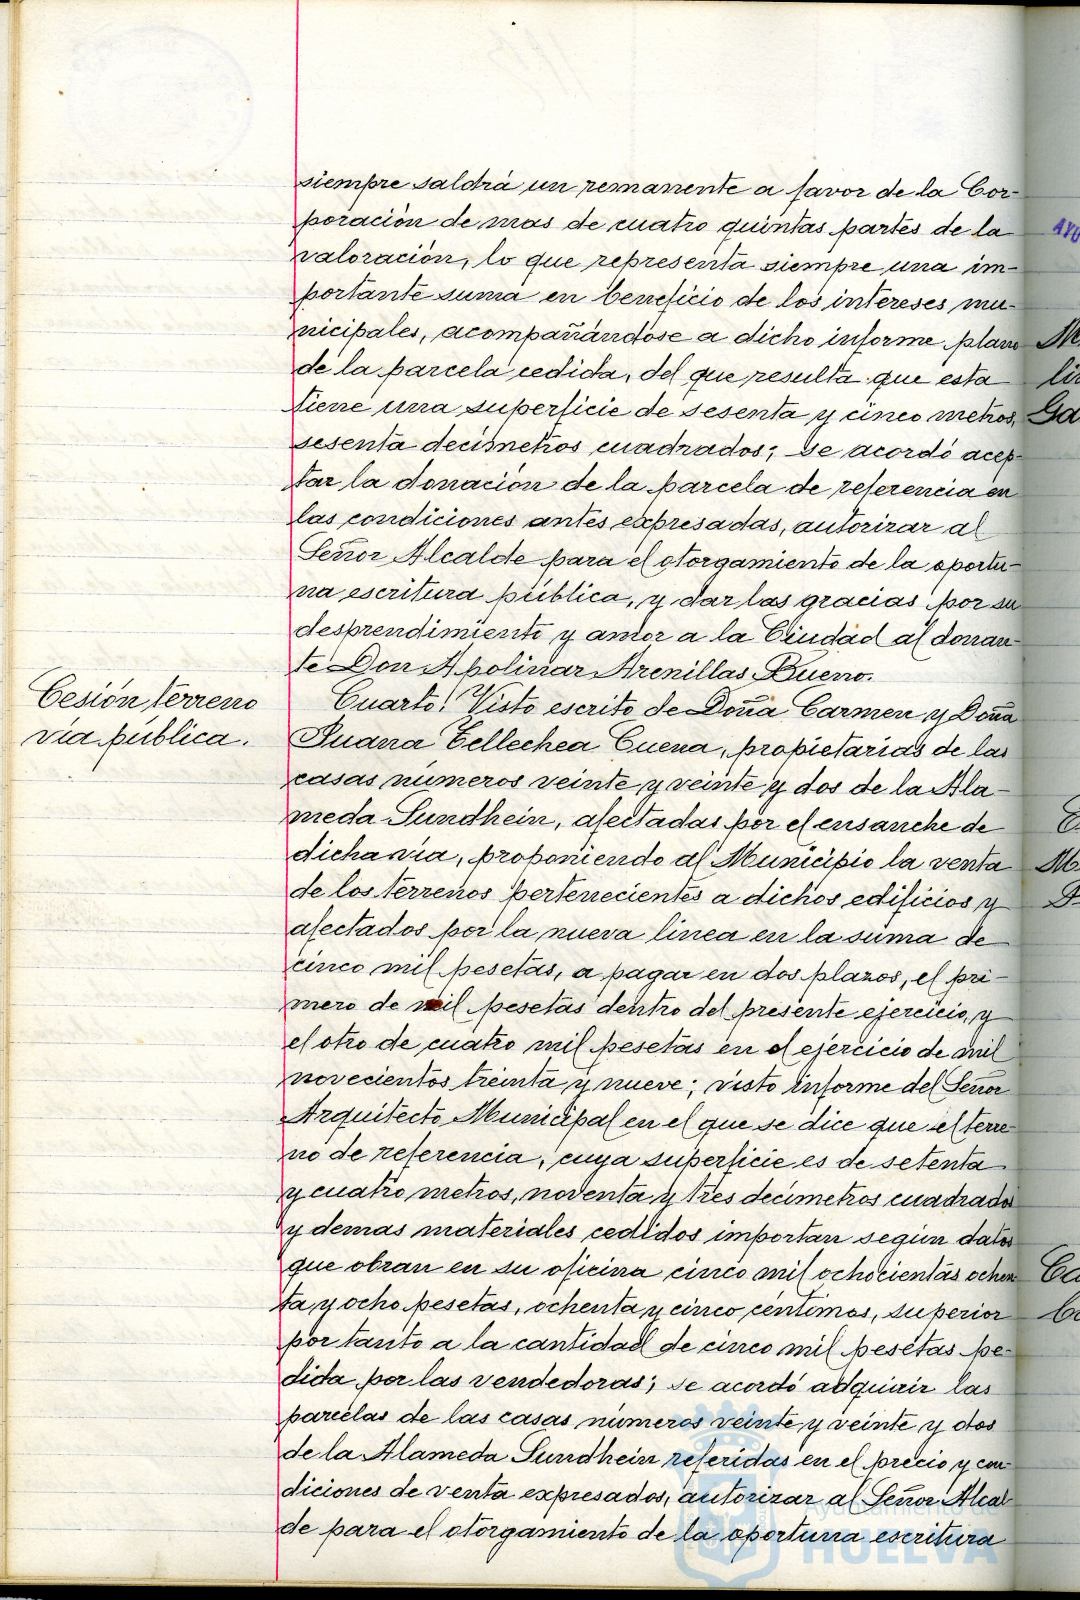 siempre saldrá un remanente a favor de la Cor-
poración de mas de cuatro quintas partes de la
valoración, lo que representa siempre una im-
portante suma en beneficio de los intereses mu-
nicipales, acompañándose a dicho informe plano
de la parcela cedida, del que resulta que esta
tiene una superficie de sesenta y cinco metros,
sesenta decimetros cuadrados; se acordó acep-
tar la donación de la parcela de referencia en
las condiciones antes expresadas, autorizar al
Señor Alcalde para el otorgamiento de la oportu-
na escritura pública, y dar las gracias por su
desprendimiento y amor a la Ciudad al donan-
te Don Apolinar Arenillas Bueno.
Cesión terreno
vía pública.
Cuarto: Visto escrito de Doña Carmen y Doña
Juana Tellechea Cuena, propietarias de las
casas números veinte y veinte y dos de la Ala-
meda Sundhein, afectadas por el ensanche de
dicha vía, proponiendo al Municipio la venta
de los terrenos pertenecientes a dichos edificios y
afectados por la nueva linea en la suma de
cinco mil pesetas, a pagar en dos plazos, el pri-
mero de mil pesetas dentro del presente ejercicio, y
el otro de cuatro mil pesetas en el ejercicio de mil
novecientos treinta y nueve; visto informe del Señor
Arquitecto Municipal en el que se dice que el terre-
no de referencia, cuya superficie es de setenta
y cuatro metros, noventa y tres decimetros cuadrados
y demas materiales cedidos importan según datos
que obran en su oficina cinco mil ochocientas ochen
ta y ocho pesetas, ochenta y cinco centimos, superior
por tanto a la cantidad de cinco mil pesetas pe-
dida por las vendedoras; se acordó adquirir las
parcelas de las casas números veinte y veinte y dos
de la Alameda Sundhein referidas en el precio y con
diciones de venta expresados, autorizar al Señor Alcal
de para el otorgamiento de la oportuna escritura
Ayuntamiento de
HUELVA